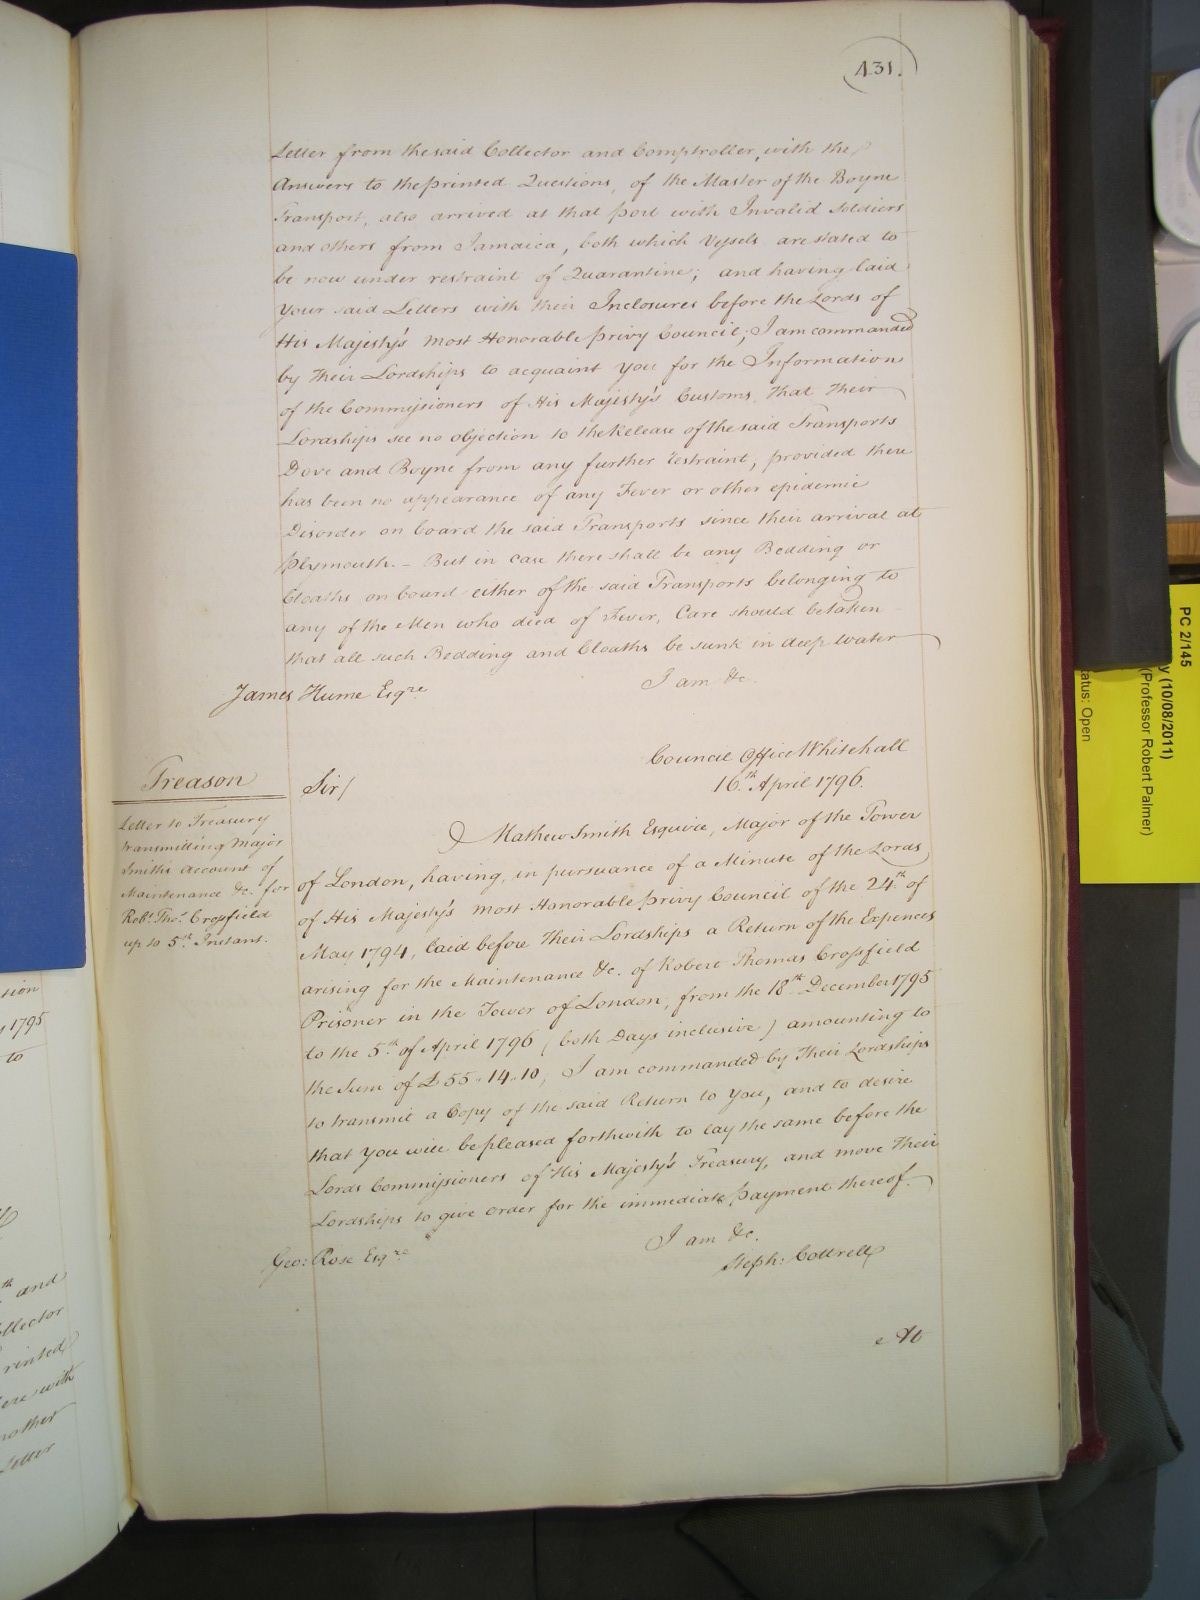 431.
Letter from the said Collector and Comptroller, with the
Answers to the printed Questions, of the Master of the Boyne
Transport, also arrived at that port with Invalid Soldiers
and others from Jamaica, both which Vessels are stated to
be now under restraint of Quarantine; and having laid
Your said Letters with their Inclosures before the Lords of
His Majesty's most Honorable privy Council; I am commanded
by Their Lordships to acquaint you for the Information
of the Commissioners of His Majesty's Customs, that Their
Lordships see no objection to the Release of the said Transports
Dove and Boyne from any further restraint, provided there
has been no appearance of any Fever or other epidemic
Disorder on board the said Transports since their arrival at
Plymouth. – But in case there shall be any Bedding or
Cloaths on board either of the said Transports belonging to
any of the Men who died of Fever, Care should be taken
that all such Bedding and Cloaths be sunk in deep Water
I am &c.
James Hume Esqre
Council Office Whitehall
16th April 1796.
Treason
Letter to Treasury
transmitting Major
Smiths account of
Maintenance &c. for
Robt. Thos. Crossfield
up to 5th Instant.
Sir/
Mathew Smith Esquire, Major of the Tower
of London, having, in pursuance of a Minute of the Lords
of His Majesty's most Honorable privy Council of the 24th of
May 1794, laid before Their Lordships a Return of the Expences
arising for the Maintenance &c. of Robert Thomas Crossfield
Prisoner in the Tower of London, from the 18th December 1795
to the 5th of April 1796 (both Days inclusive) amounting to
the Sum of £55..14..10, I am commanded by Their Lordships
to transmit a Copy of the said Return to You, and to desire
that you will be pleased forthwith to lay the same before the
Lords Commissioners of His Majesty's Treasury, and move Their
Lordships to give order for the immediate payment thereof.
I am &c.
Steph: Cottrell
Geo: Rose Esqre
At
tion
1795
to
th and
ollector
rinted
ere with
nother
Letter
PC 2/145
y (10/08/2011)
(Professor Robert Palmer)
atus: Open